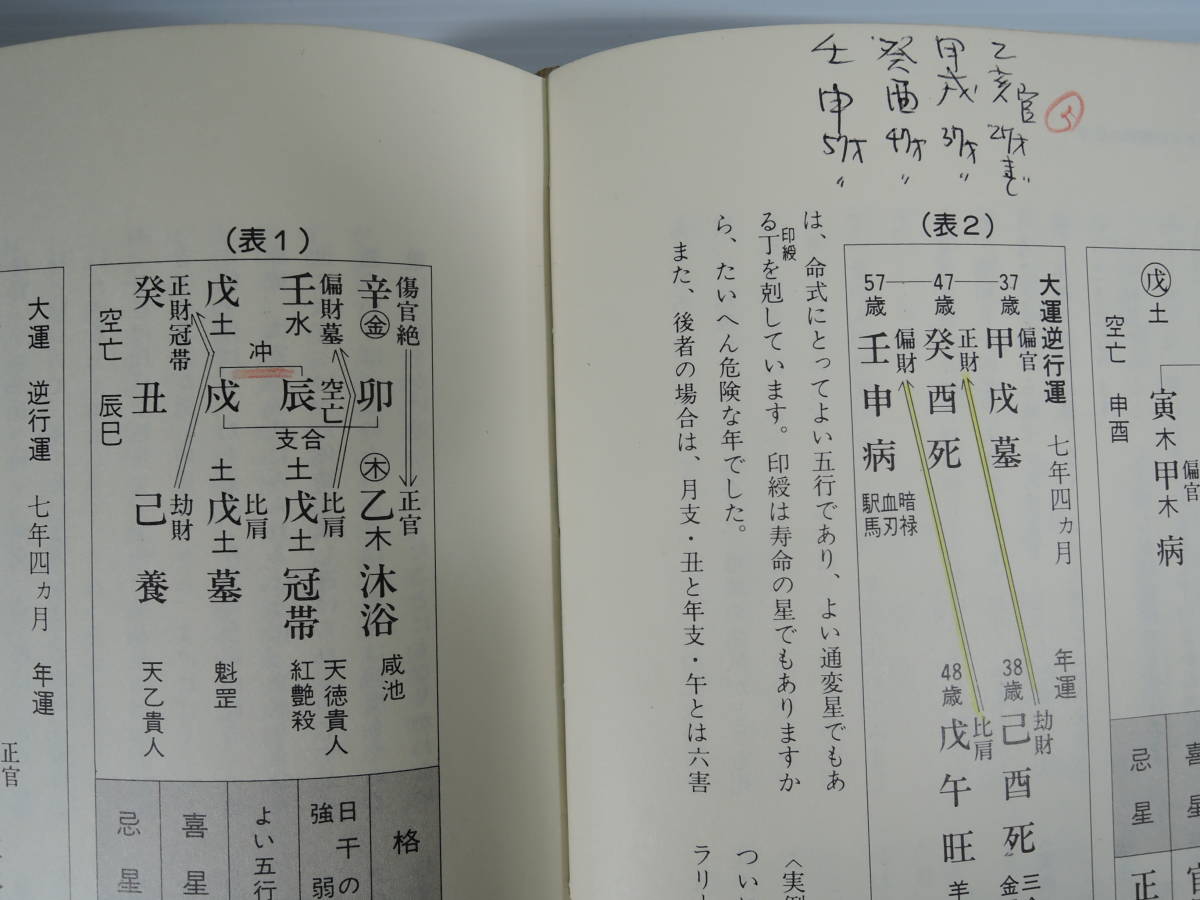 乙亥官 27才まで
甲戌 37才〃
癸酉 47才〃
壬申 57才〃
(表1)
辛㊎ 傷官絶
卯
㊍
乙木 正官
沐浴
咸池
壬水 偏財墓
辰 空亡
土戊土 比肩
冠帯
天徳貴人
紅艶殺
冲
支合
戊土
戌
土戊土 比肩
墓
魁罡
癸 正財冠帯
丑
己 劫財
養
天乙貴人
空亡 辰巳
大運 逆行運 七年四ヵ月 年運
正官
格
日干の強弱
よい五行
喜星
忌星
戊土
寅木
偏官
甲木
病
空亡 申酉
喜
忌星
官
正
(表2)
大運逆行運 七年四ヵ月 年運
37歳
甲 偏官
戌
墓
38歳
己 劫財
酉
死
三
金
47歳
癸 正財
酉
死
48歳
戊 比肩
午
旺
羊
57歳
壬 偏財
申
病
暗禄
血刃
駅馬
は、命式にとってよい五行であり、よい通変星でもあ
る丁印綬を剋しています。印綬は寿命の星でもありますか
ら、たいへん危険な年でした。
また、後者の場合は、月支・丑と年支・午とは六害
〈実例
つい
ラリー